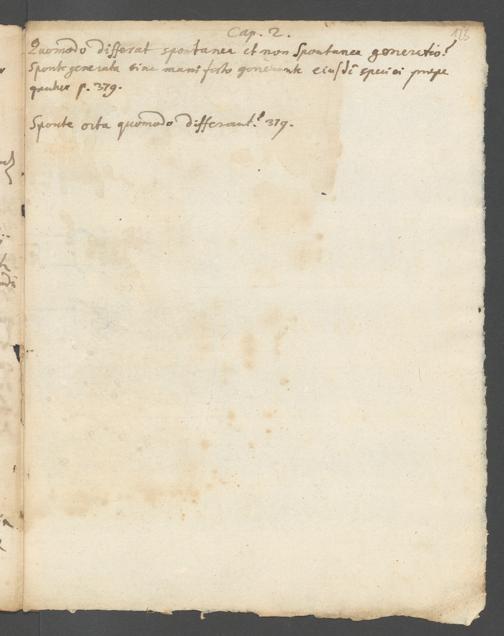 Cap. 2.
Quomodo differat spontanea et non spontanea generatio?
Sponte generata sine manifesto generante eiusdē speciei
p. 379.
Sponte orta quomodo differant? 379.